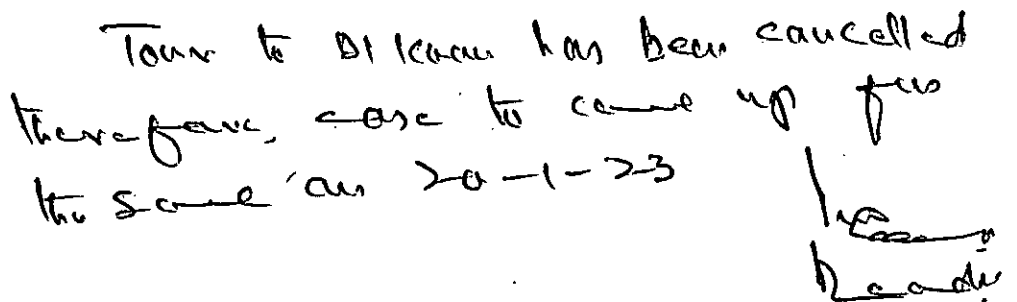 Tour to DI Khan has been cancelled
therefore, case to come up for
the same on 20-1-23
Reader